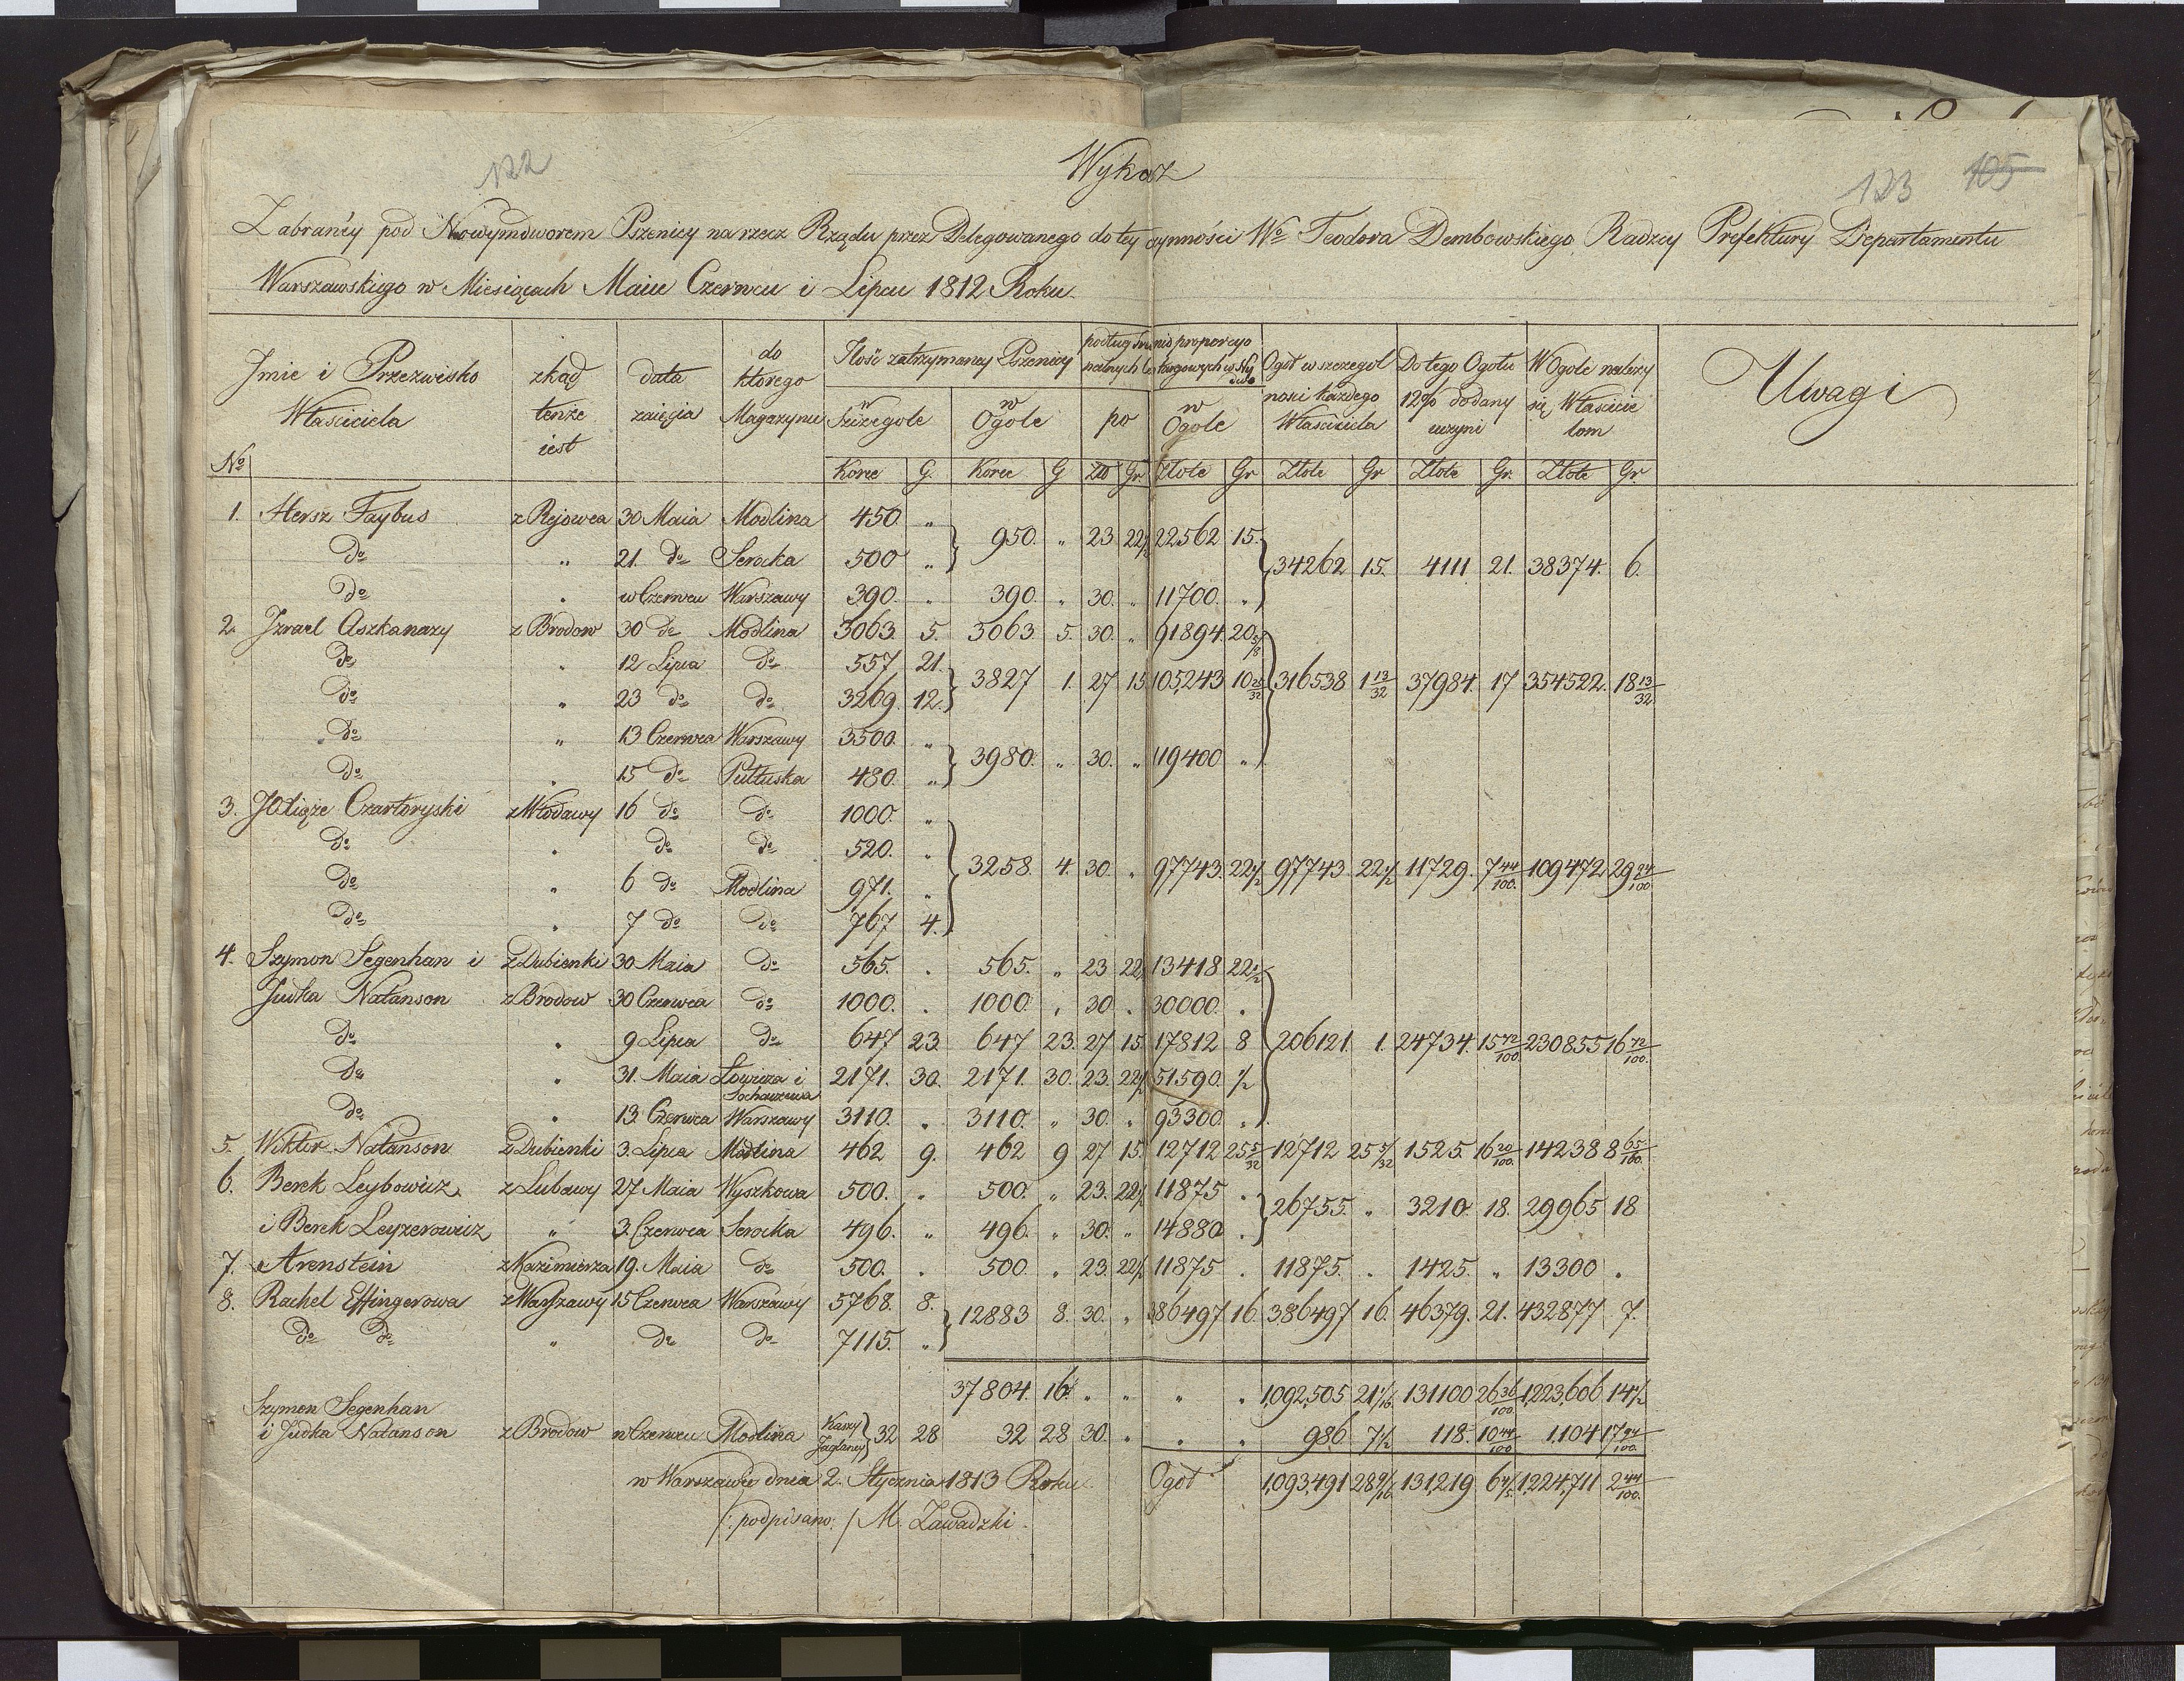 122
Wykaz
123 105
Zabraney pod Nowymdworem Pszenicy na rzecz Rządu przez Delegowanego do tey czynności Wo Teodora Dembowskiego Radzcy Prefektury Departamentu
Warszawskiego w Miesiącach Maiu Czerwcu i Lipcu 1812 Roku.
No Jmie i Przezwisko Właściciela | zkąd tenże iest | data zaięcia | do którego Magazynu | Ilość zatrzymaney Pszenicy | podług proporcyo nalnych targowych | Ogół w szczegól ności każdego Właściciela | Do tego Ogółu 12% dodany czyni | W Ogóle należy się Właścicie lom | Uwagi
w Szczegole | w Ogole | po | w Ogole
Korce | G. | Korce | G | Zło | Gr | Złote | Gr | Złote | Gr | Złote | Gr. | Złote | Gr.
1. Hersz Faybus z Rejowca 30 Maia Modlina 450 " 950. " 23 22½ 22562 15. 34262 15. 4111. 21. 38374. 6.
do " 21. do Serocka 500 "
do " w Czerwcu Warszawy 390. " 390. " 30. " 11700. "
2. Izrael Aszkanazy z Brodow 30 do Modlina 3063. 5. 3063 5. 30. " 91894. 20 5/8 316538 1 13/32 37984. 17 354522. 18 13/32
do " 12 Lipca do 557 21. 3827 1. 27 15. 105,243 10 25/32
do " 23 do do 3269. 12.
do " 13 Czerwca Warszawy 3500. " 3980. " 30. " 119400 "
do " 15 do Pułtuska 480. "
3. JOxiąże Czartoryski z Włodawy 16 do do 1000. " 3258. 4. 30. " 97743. 22½ 97743 22½ 11729. 7 44/100. 109472 29 94/100
do " do do 520. "
do " 6 do Modlina 971. "
do " 7 do do 767 4.
4. Szymon Segenhan i z Dubienki 30 Maia do 565. " 565. " 23 22½ 13418 22½ 206121. 1. 24734. 15 72/100. 230855 16 72/100.
Judka Natanson z Brodow 30 Czerwca do 1000. " 1000. " 30 " 30000. "
do " 9 Lipca do 647 23 647 23. 27 15 17812 8
do " 31. Maia Łowicza i Sochaczewa 2171. 30. 2171. 30. 23. 22½ 51590. ½
do " 13 Czerwca Warszawy 3110. " 3110. " 30. " 93300. "
5. Wiktor Natanson z Dubienki 3. Lipca Modlina 462 9. 462 9 27 15. 12712 25 5/32 12712 25 5/32 1525. 16 20/100. 14238 8 65/100.
6. Berek Leybowicz z Lubawy 27 Maia Wyszkowa 500. " 500. " 23. 22½ 11875 " 26755. " 3210. 18. 29965 18
i Berek Leyzerowicz " 3. Czerwca Serocka 496. " 496. " 30. " 14880 "
7. Arenstein z Kazimierza 19. Maia do 500. " 500. " 23. 22½ 11875 " 11875. " 1425. " 13300 "
8. Rachel Effingerowa z Warszawy 15 Czerwca Warszawy 5768. 8. 12883 8. 30. " 386497 16. 386497 16. 46379. 21. 432877 7.
do do " do do 7115. "
37804. 16 " " " " 1,092,505 21 1/16 131100 26 36/100 1,223,606 14½
Szymon Segenhan
i Judka Natanson z Brodow w Czerwcu Modlina Kaszy Jaglaney 32 28 32 28 30. " " " 986 7½ 118. 10 44/100 1,104 17 94/100.
w Warszawie dnia 2. Stycznia 1813 Roku. Ogół 1,093,491 28 9/16 131,219 6 4/5 1,224,711 2 44/100.
/: podpisano: / M. Zawadzki.